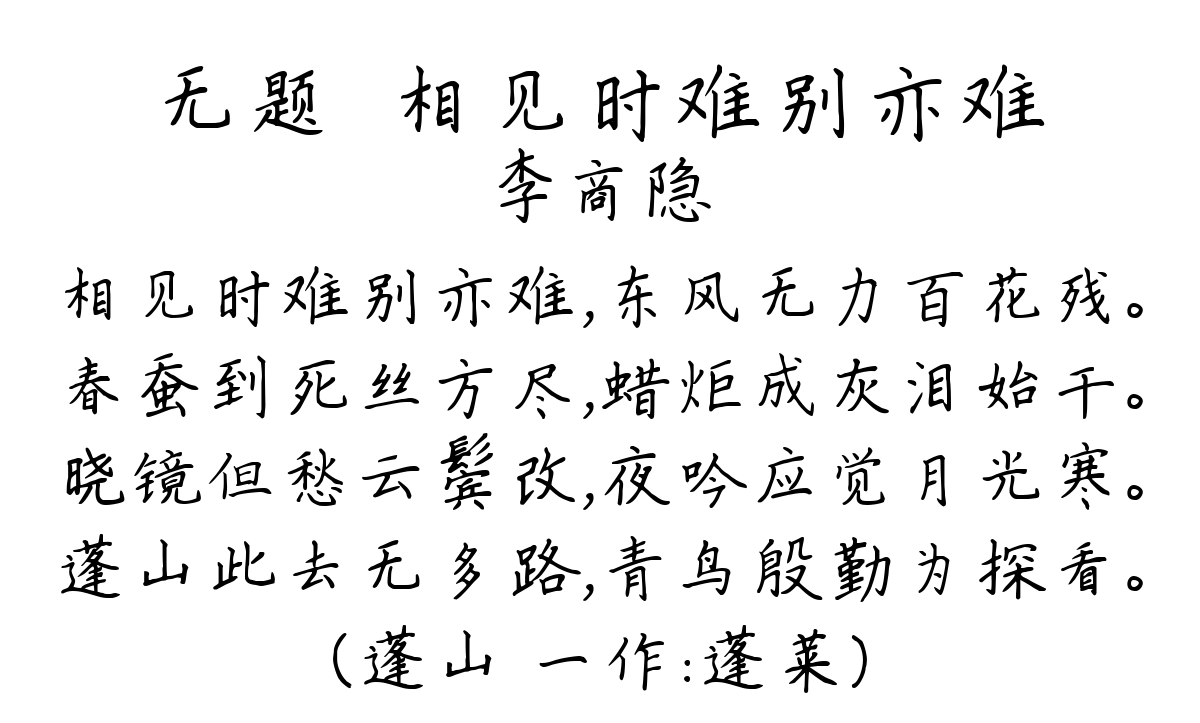 无题 相见时难别亦难
李商隐
相见时难别亦难,东风无力百花残。
春蚕到死丝方尽,蜡炬成灰泪始干。
晓镜但愁云鬓改,夜吟应觉月光寒。
蓬山此去无多路,青鸟殷勤为探看。
(蓬山 一作:蓬莱)